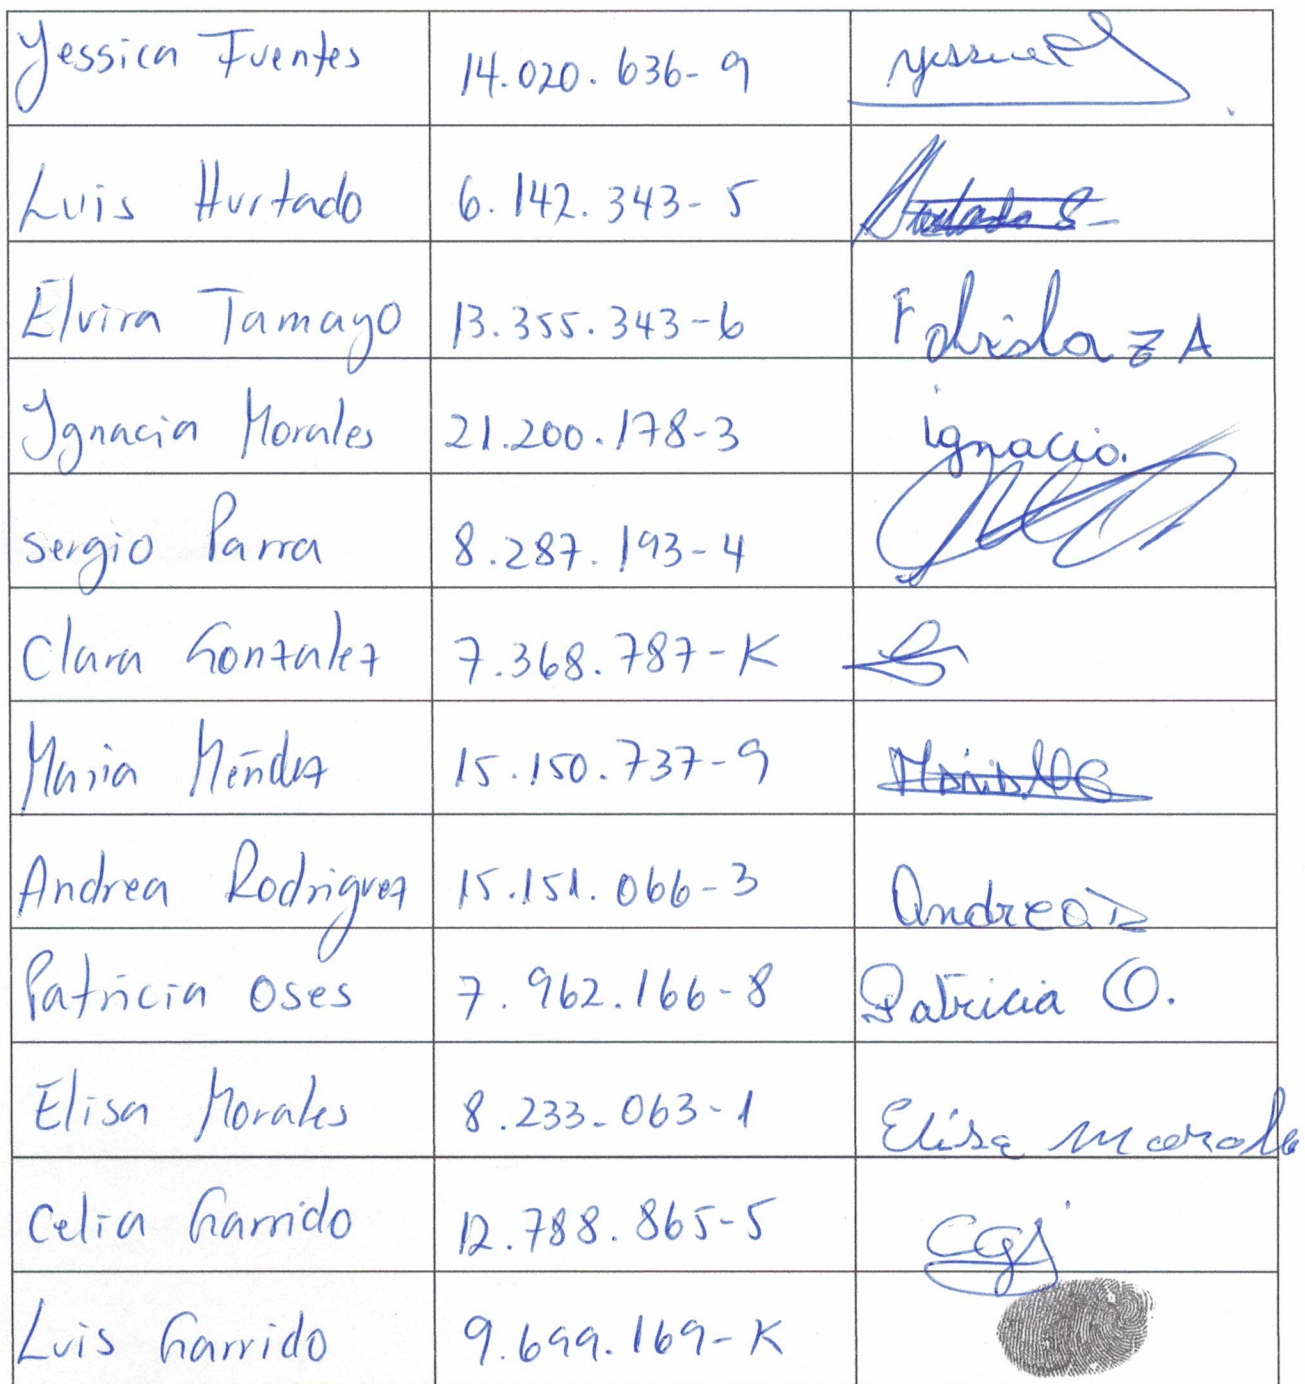 Yessica Fuentes 14.020.636-9
Luis Hurtado 6.142.343-5
Elvira Tamayo 13.355.343-6
Ignacia Morales 21.200.178-3 ignacio.
Sergio Parra 8.287.193-4
Clara Gonzalez 7.368.787-K
Maria Méndez 15.150.737-9
Andrea Rodriguez 15.151.066-3 Andrea R
Patricia Oses 7.962.166-8 Patricia O.
Elisa Morales 8.233.063-1 Elisa Morale
Celia Garrido 12.788.865-5 CGJ
Luis Garrido 9.699.169-K